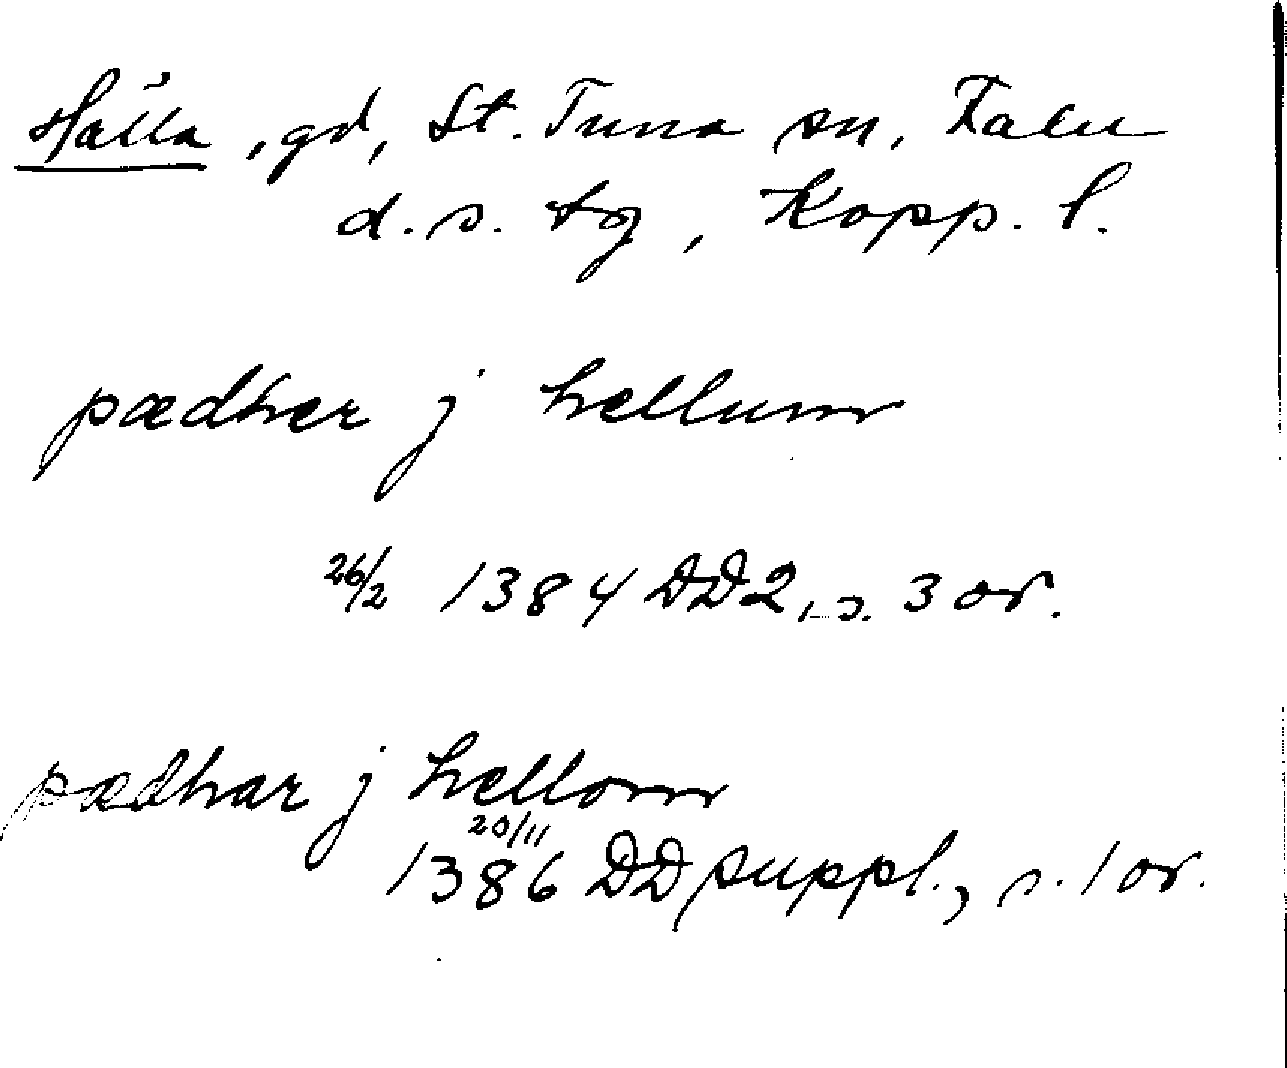 Hälla, gd, St. Tuna sn, Falu
d. s. tg, Kopp. l.
pædher j hellum
26/2 1384 DD2, s. 3 or.
pædhar j hellom
20/11
1386 DD suppl., s. 1 or.